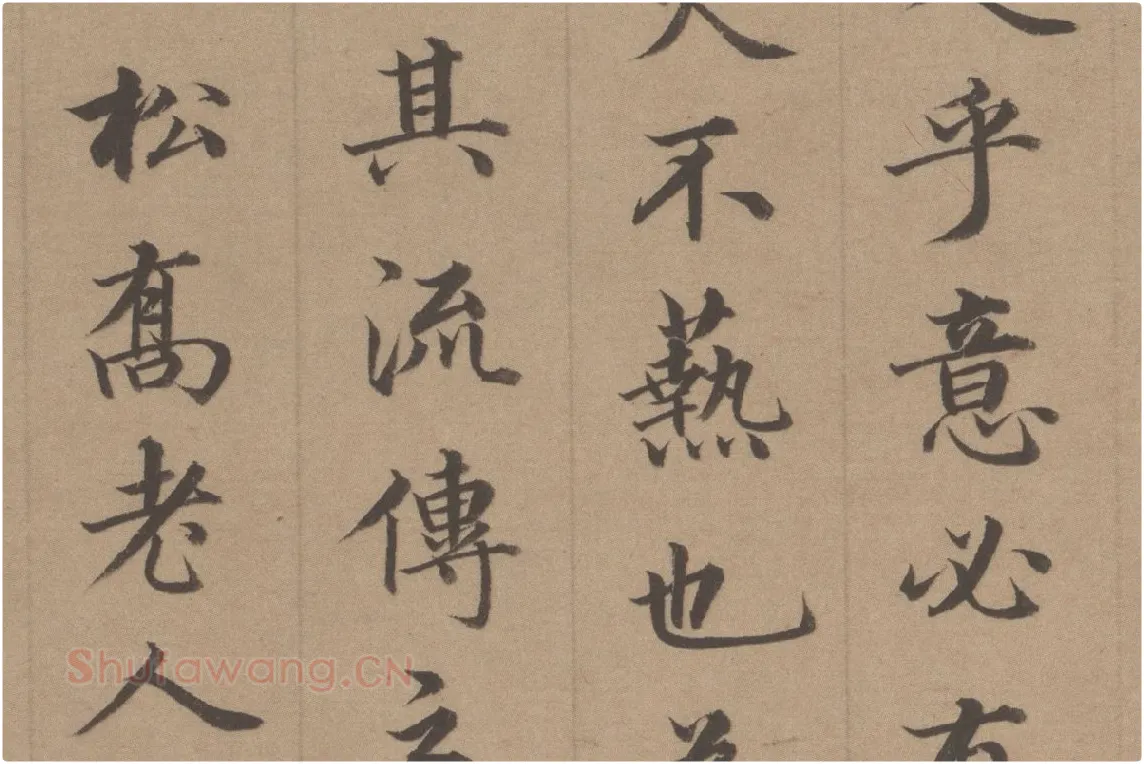 乎意必有
不爇也
其流傳
松喬老人
Shufawang.CN